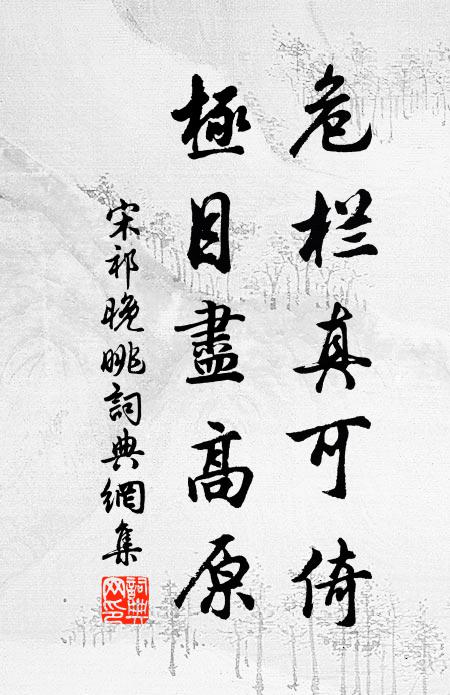 危栏真可倚
極目盡高原
宋祁晚眺詞典網集
詞典